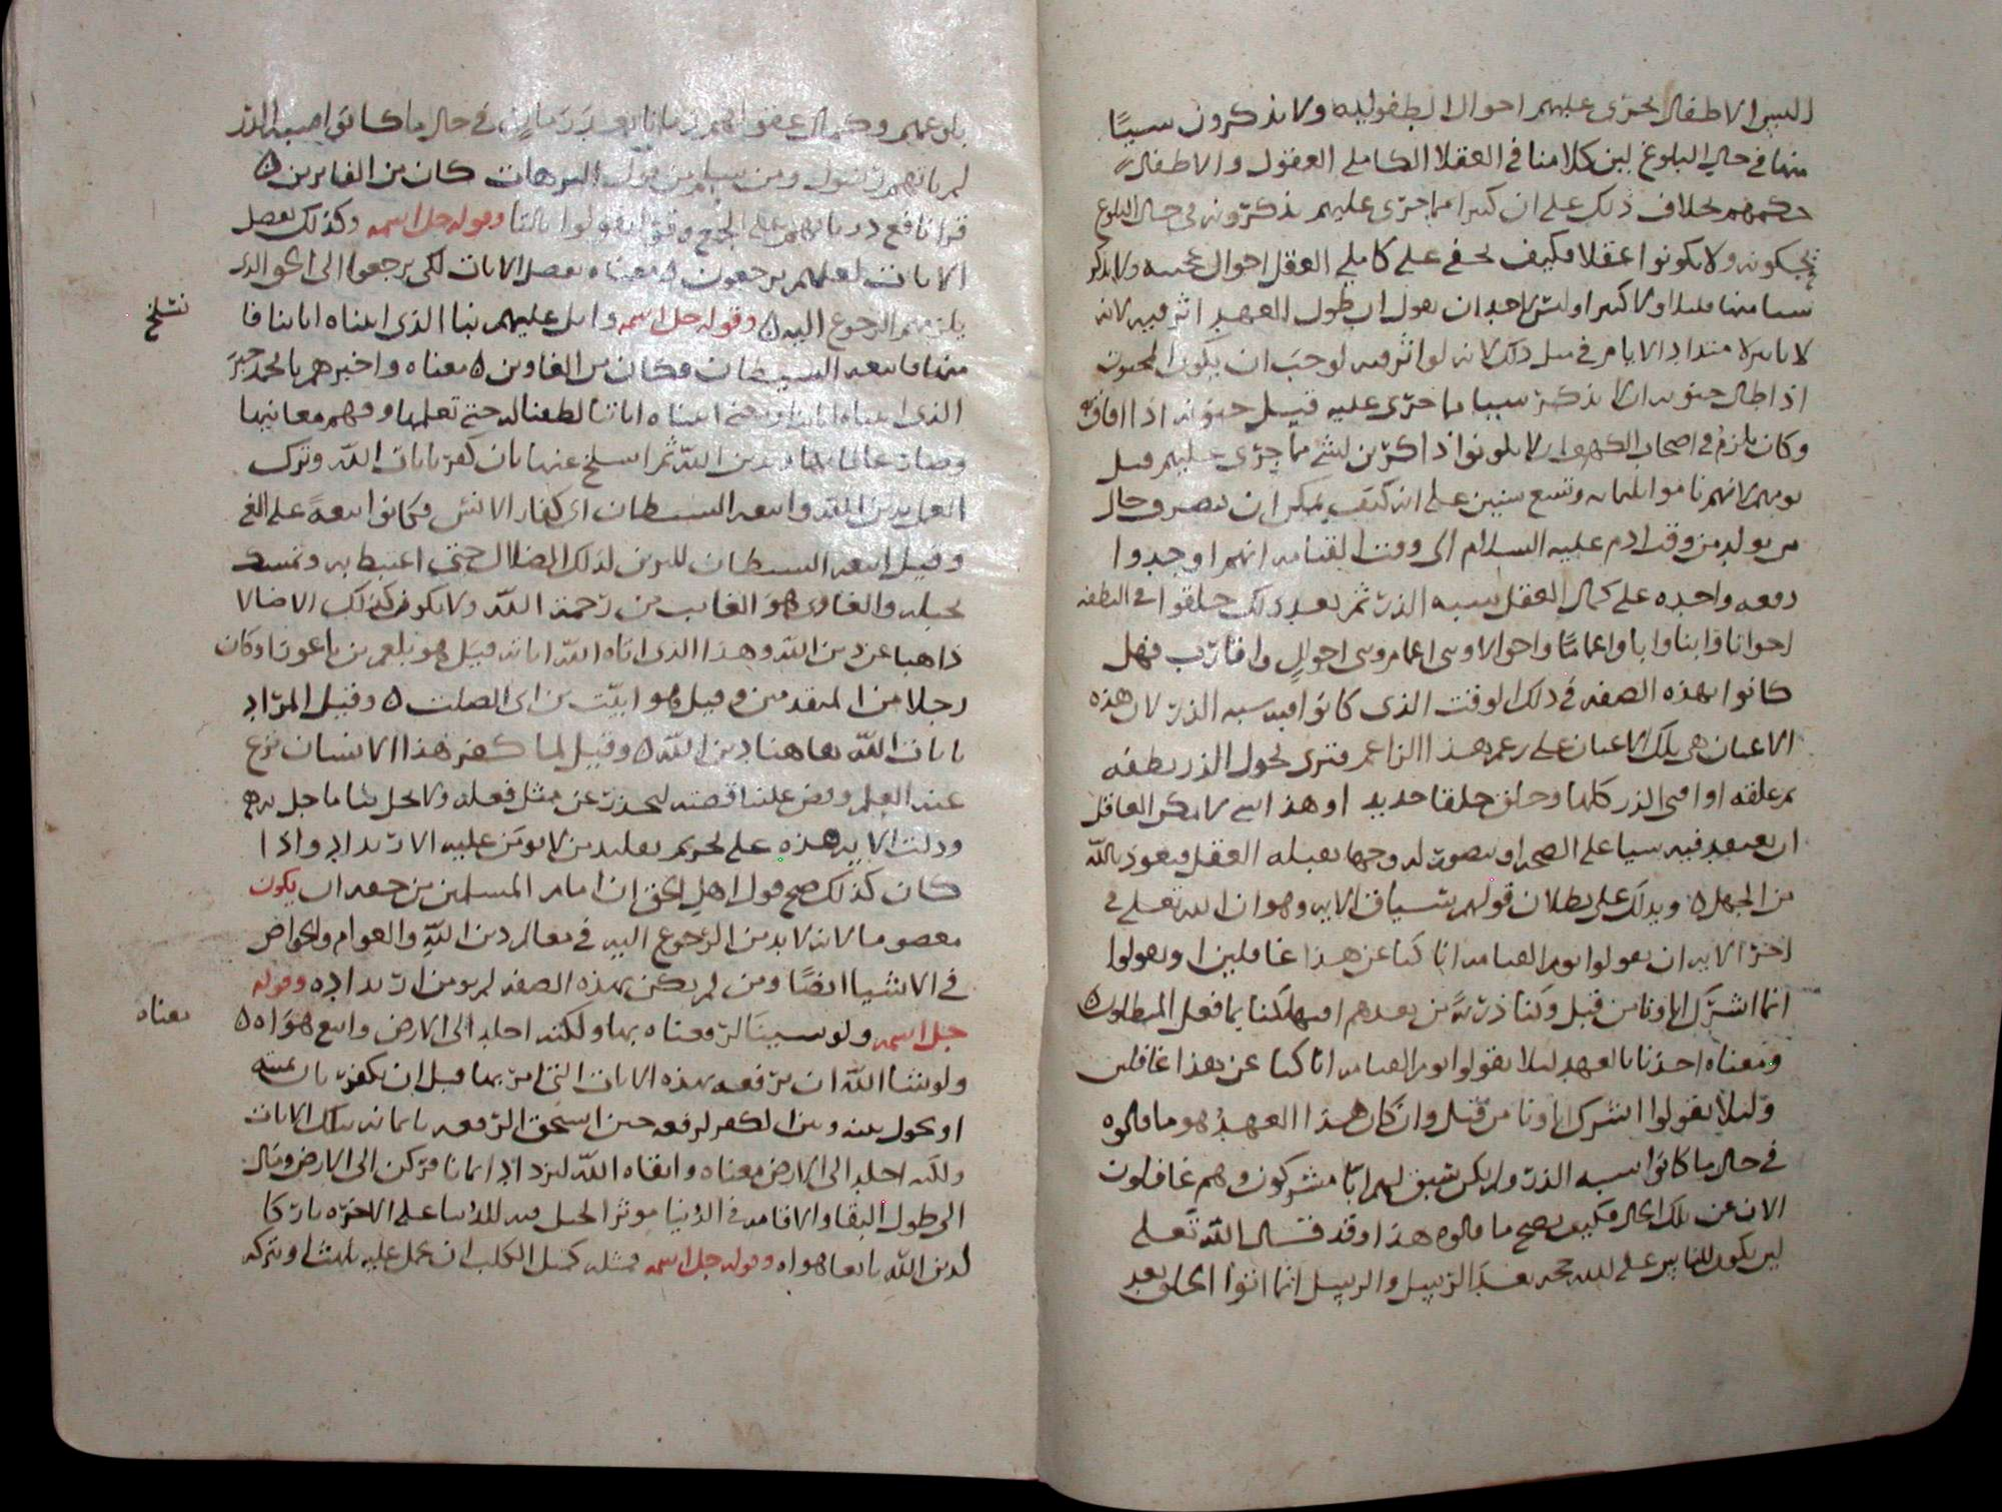 اليس الاطفال تجري عليهم احوال الطفولية ولا يذكرون شيئا
منها في حال البلوغ لان كلامنا في العقلا الكاملي العقول والاطفال
حكمهم بخلاف ذلك على ان كثيرا مما جرى عليهم يذكرونه في حال البلوغ
ويحكونه ولا يكونوا عقلا فكيف يخفى على كاملي العقل احوال عجيبة ولا يذكر
شيا منها قليلا ولا كثيرا وليس لاحد ان يقول ان طول العهد اثر فيه لانه
لا تاثير لامتداد الايام في مثل ذلك لانه لو اثر فيه لوجب ان يكون المجنون
اذا طال جنونه ان لا يذكر شيا مما جرى عليه قبل جنونه اذا افاق
وكان يلزم في اصحاب الكهف ان لا يكونوا ذاكرين لشي مما جرى عليهم قبل
نومهم لانهم ناموا ثلثمايه وتسع سنين على انه كيف يمكن ان يتصور حال
من يولد من وقت ادم عليه السلام الى وقت القيامه انهم اوجدوا
دفعه واحده على كمال العقل شبه الذر ثم بعد ذلك خلقوا في النطفه
اخوانا وابنا وابا واعماما واخوالا وبني اعمام وبني اخوال واقارب فهل
كانوا بهذه الصفه في ذلك الوقت الذي كانوا فيه شبه الذر لان هذه
الاعيان هي تلك الاعيان على زعم هذا الزاعم فترى تحول الذر نطفه
ثم علقه او افنى الذر كلها وخلق خلقا جديد او هذا شي لا يمكن العاقل
ان يعتقد فيه شيا على الصحه او يتصور له وجها يقبله العقل فنعوذ بالله
من الجهل ٥ ويدلك على بطلان قولهم سياق الايه وهو ان الله تعلى في
اخر الايه ان يقولوا يوم القيامه انا كنا عن هذا غافلين او يقولوا
انما اشرك اباونا من قبل وكنا ذرية من بعدهم افتهلكنا بما فعل المبطلون ٥
ومعناه اخذنا بالعهد ليلا يقولوا يوم القيامه انا كنا عن هذا غافلين
وليلا يقولوا اشرك اباونا من قبل وان كان هذا العهد هو ما قالوه
في حال ما كانوا شبه الذر ولم يكن سبق لهم ابا مشركون وهم غافلون
الان عن تلك الحال فكيف يصح ما قالوه هذا وقد قال الله تعلى
ليلا يكون للناس على الله حجه بعد الرسل والرسل انما اتوا الخلق بعد
بلوغهم وكمال عقولهم زمانا بعد زمان في حال ما كانوا شبه الذر
لم ياتهم رسول ومن سلم من قول الترهات كان من الفايزين ٥
قرا نافع ذرياتهم على الجمع وقرا يقولوا بالتا وقوله جل اسمه وكذلك نفصل
الايات لعلهم يرجعون ٥ معناه نفصل الايات لكي يرجعوا الى الحق الذي
يلزمهم الرجوع اليه ٥ وقوله جل اسمه واتل عليهم نبا الذي اتيناه اياتنا فا
نسلخ
منها فاتبعه الشيطان فكان من الغاوين ٥ معناه واخبرهم يا محمد خبر
الذي اتيناه اياتنا ومعنى اتيناه اياتنا لطفنا له حتى تعلمها وفهم معانيها
وصار عالما بها وبدين الله ثم انسلخ عنها بان كفر بايات الله وترك
العمل بدين الله واتبعه الشيطان اي كفار الانس فكانوا تبعه على الغي
وقيل اتبعه الشيطان للدين لذلك الضلال حتى اغتبط به وتمسك
بحبله والغاوي هو الخايب من رحمة الله ولا يكون كذلك الا ضالا
ذاهبا عن دين الله وهذا الذي اتاه الله اياته قيل هو بلعم بن باعورا وكان
رجلا من المتقدمين وقيل هو امية بن ابي الصلت ٥ وقيل المراد
بايات الله هاهنا دين الله ٥ وقيل لما كفر هذا الانسان نزع
عنه العلم وقص علينا قصته لنحذر عن مثل فعله ولا يحل بنا ما حل به
ودلت الايه هذه على تحريم تقليد من لا يومن عليه الارتداد واذا
كان كذلك صح قول اهل الحق ان امام المسلمين من حقه ان يكون
معصوما لانه لا بد من الرجوع اليه في معالم دين الله والعوام والخواص
في الاشيا ايضا ومن لم يكن بهذه الصفه لم يومن ارتداده وقوله
جل اسمه ولو شينا لرفعناه بها ولكنه اخلد الى الارض واتبع هواه ٥
معناه
ولو شا الله ان يرفعه بهذه الايات التي امن بها قبل ان يكفر بان يميته
او يحول بينه وبين الكفر لرفعه حين استحق الرفعه بايمانه بتلك الايات
ولكنه اخلد الى الارض معناه وابقاه الله ليزداد ايمانا فركن الى الارض ومال
الى طول البقا والاقامه في الدنيا موثرا لحبل فيه للدنيا على الاخره تاركا
لدين الله تابعا هواه وقوله جل اسمه فمثله كمثل الكلب ان تحمل عليه يلهث او تتركه